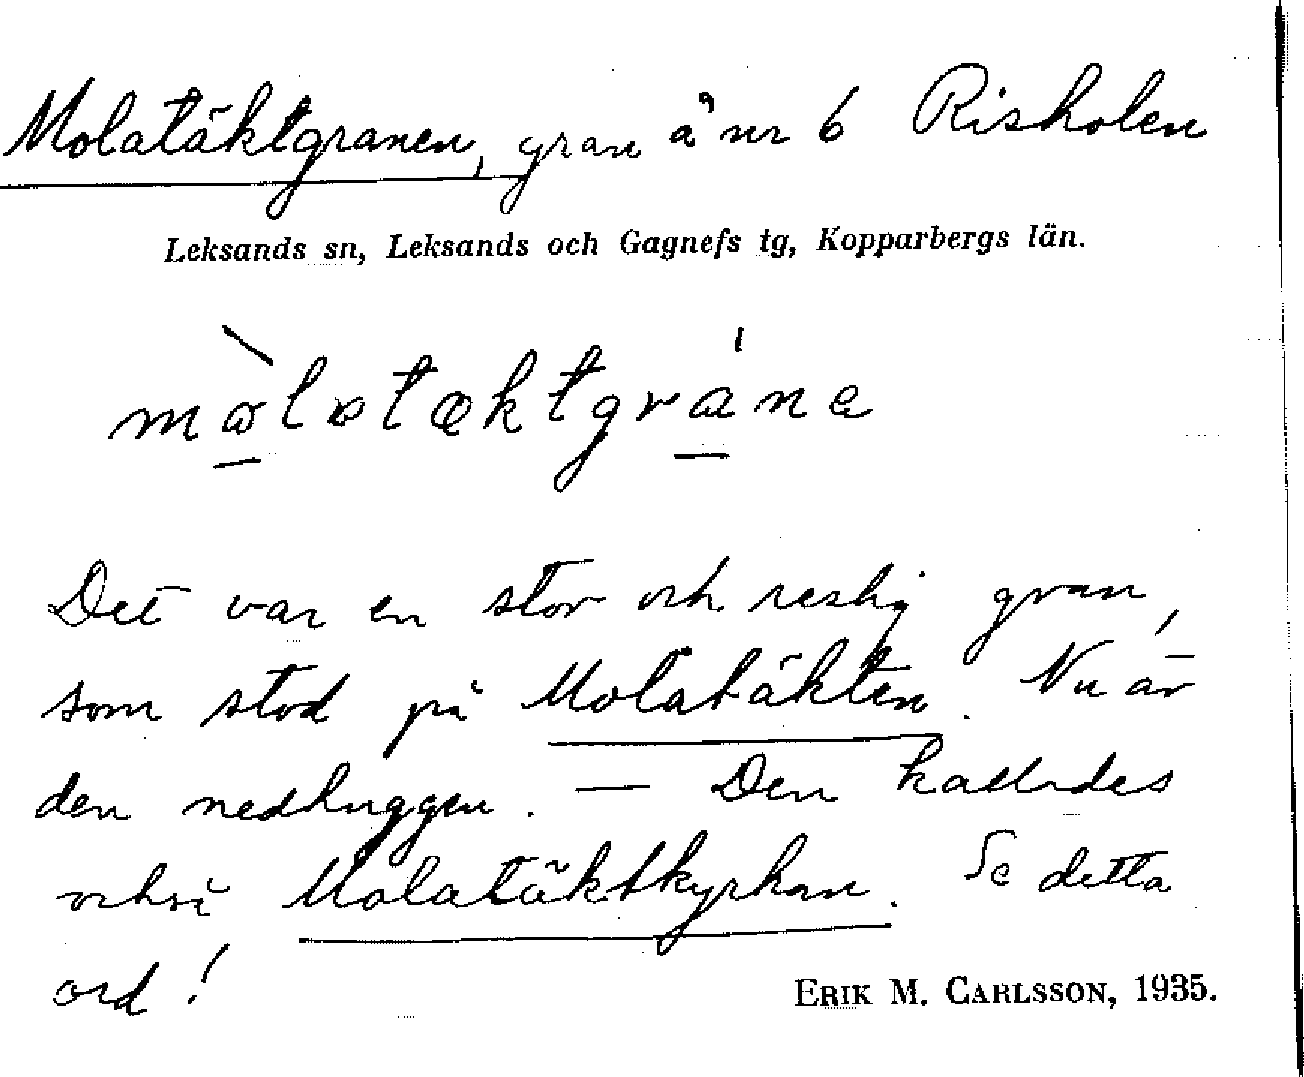 Molatäktgranen, gran å nr 6 Risholen
Leksands sn, Leksands och Gagnefs tg, Kopparbergs län.
Det var en stor och reslig gran,
som stod på Molatäkten. Nu är
den nedhuggen. — Den kallades
också Molatäktkyrkan. Se detta
ord!
ERIK M. CARLSSON, 1935.